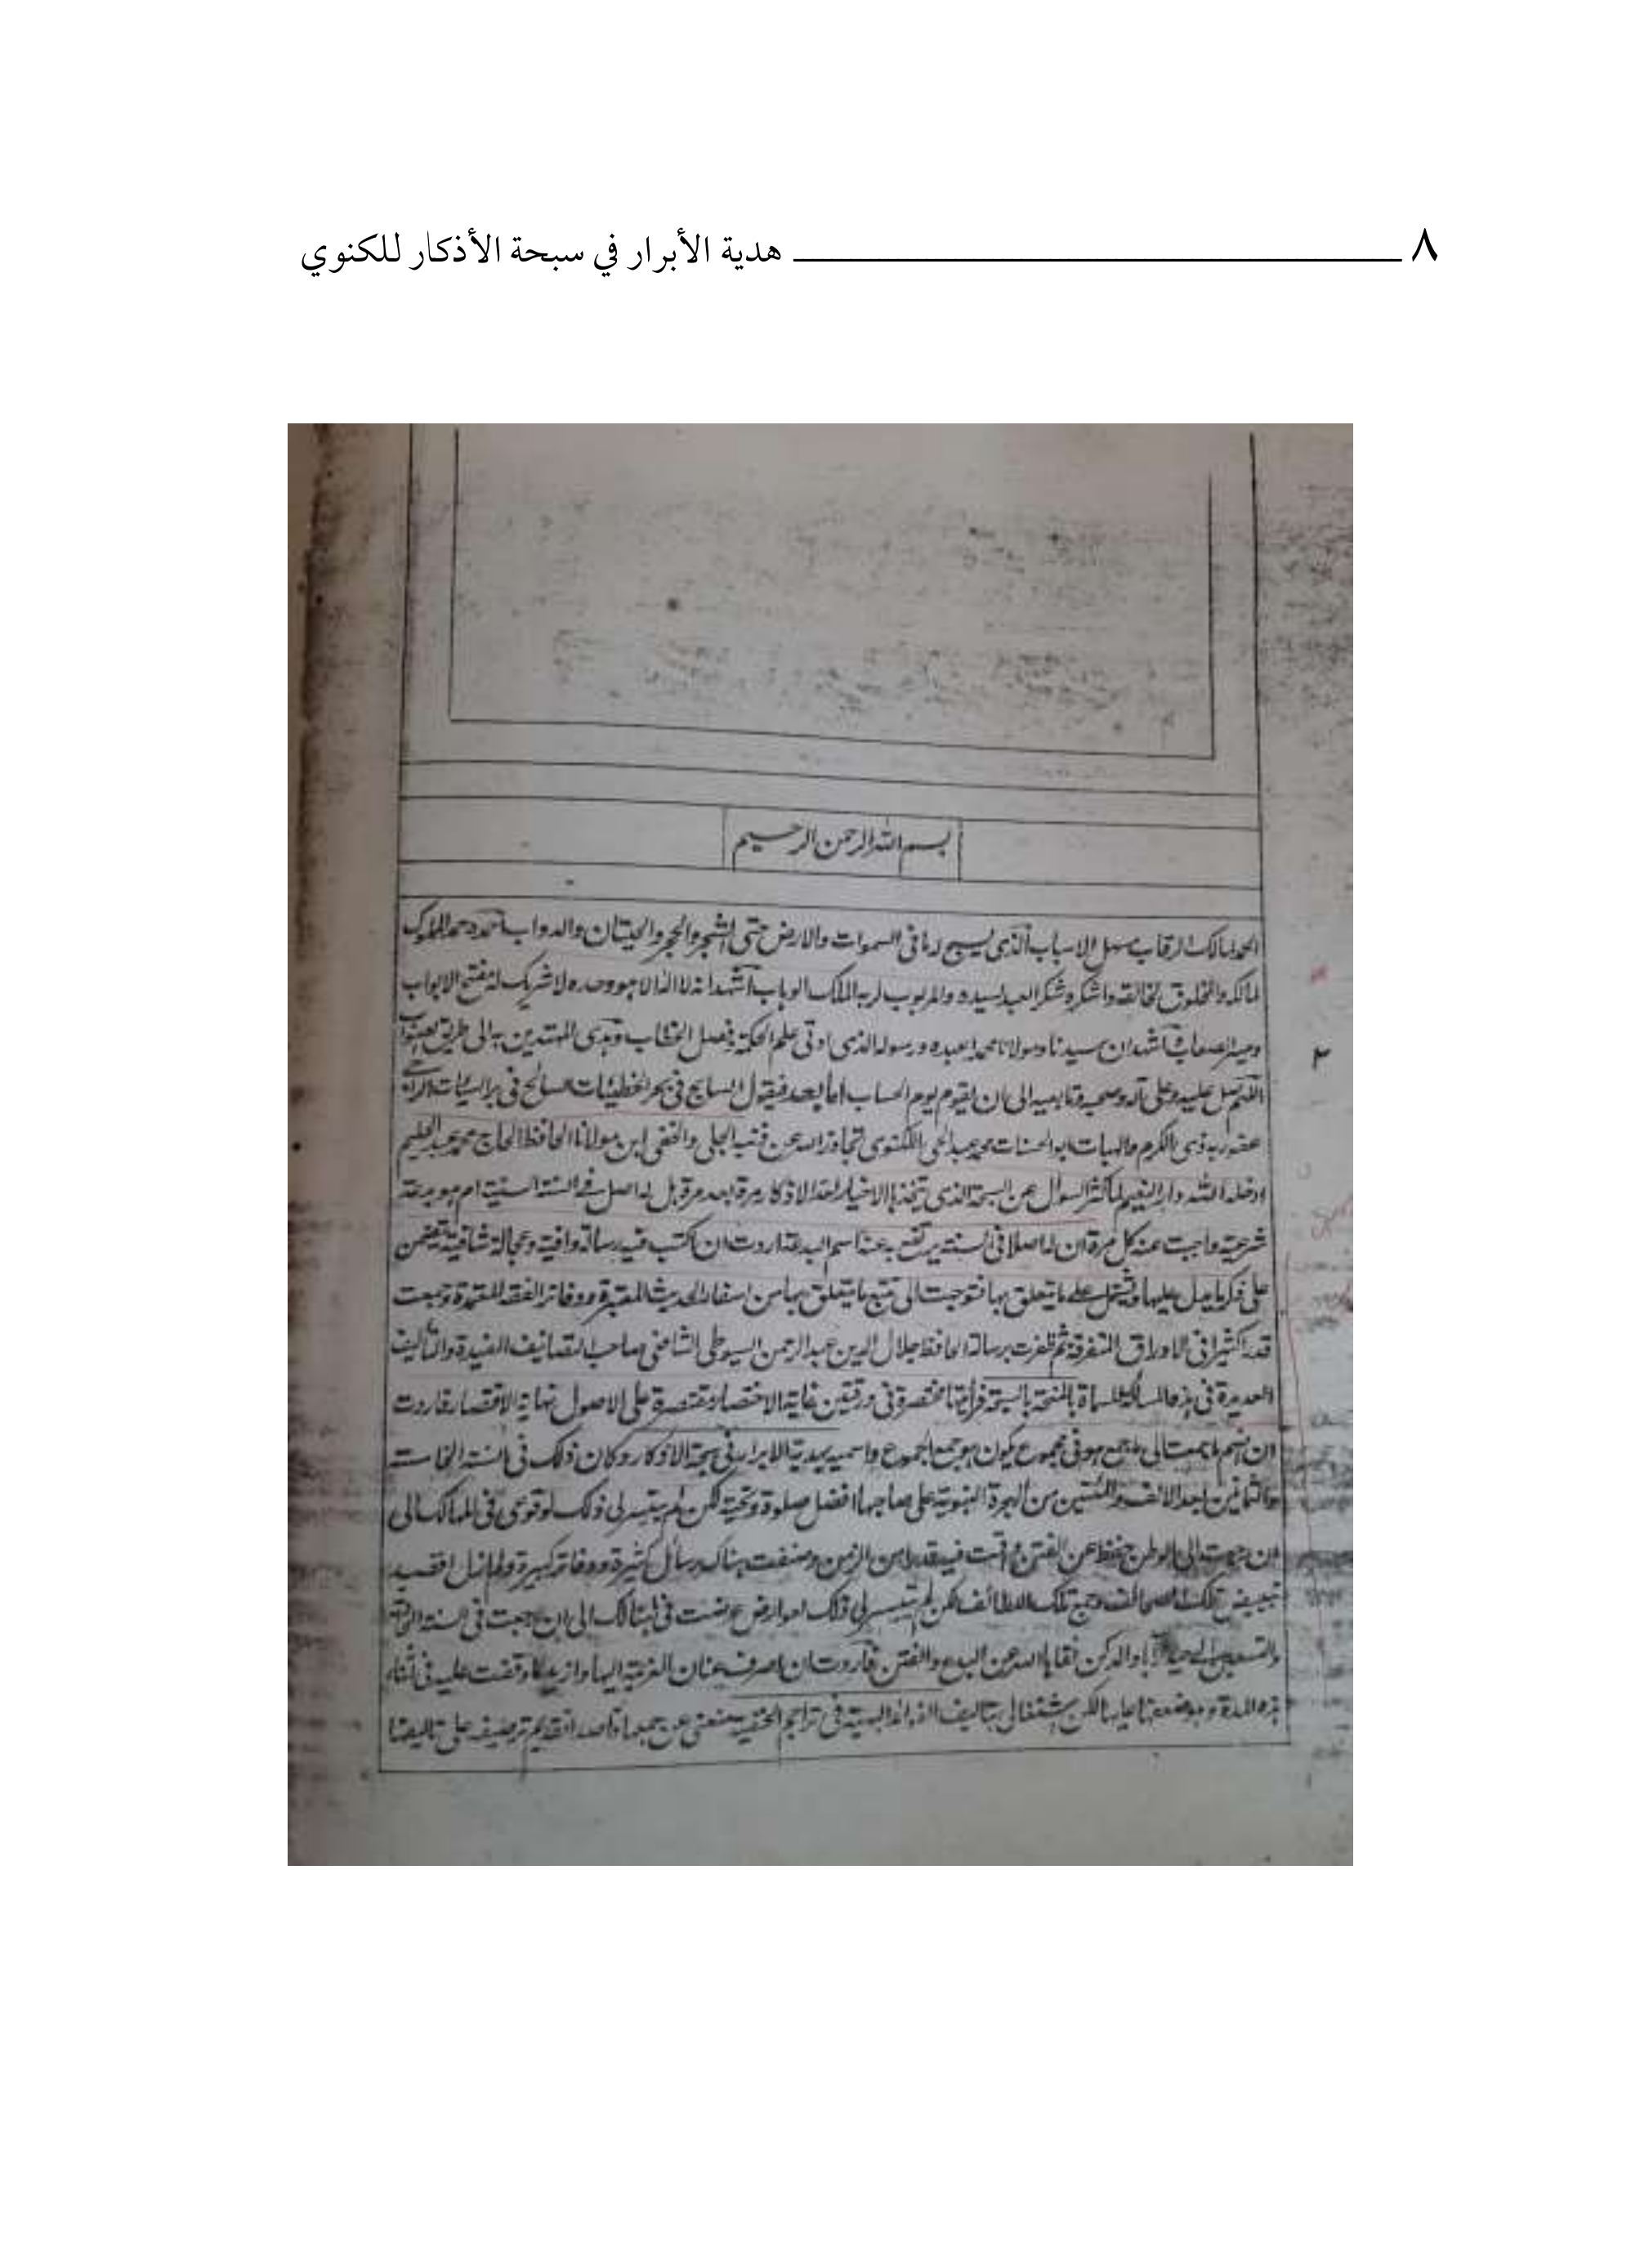 ٨ هدية الأبرار في سبحة الأذكار للكنوي
بسم الله الرحمن الرحيم
الحمد لمالك الرقاب مسهل الاسباب الذى يسبح له ما فى السموات والارض حتى الشجر والحجر والحيتان والدواب احمده حمد المملوك
لمالكه والمخلوق لخالقه واشكره شكر العبد لسيده والمربوب لربه الملك الوهاب اشهد انه لا اله الا هو وحده لا شريك له مفتح الابواب
وميسر الصعاب واشهد ان سيدنا ومولانا محمدا عبده ورسوله الذى اوتى علم الحكمة وفصل الخطاب وهدى المهتدين به الى طريق الصواب
اللهم صل عليه وعلى آله وصحبه وتابعيه الى ان يقوم يوم الحساب اما بعد فيقول السابح فى بحر الخطيئات السائح فى بر السيئات الراجى
عفو ربه ذى الكرم والهبات ابو الحسنات محمد عبد الحى اللكنوى تجاوز الله عن ذنبه الجلى والخفى ابن مولانا الحافظ الحاج محمد عبد الحليم
ادخله الله دار النعيم لما كثر السوال عن السبحة التى يتخذها الاخيار لعد الاذكار مرة بعد مرة بل له اصل فى السنة السنية ام هو بدعة
شرعية واجبت عنه كل مرة ان له اصلا فى السنة يرتفع به عنه اسم البدعة اردت ان اكتب فيه رسالة وافية وعجالة شافية يتضمن
على ذكر ما يدل عليها ويشتمل على ما يتعلق بها فتوجهت الى تتبع ما يتعلق بها من اسفار الحديث المعتبرة ودفاتر الفقه المعتمدة وجمعت
قدرا كثيرا فى الاوراق المتفرقة ثم ظفرت برسالة الحافظ جلال الدين عبد الرحمن السيوطى الشافعى صاحب التصانيف المفيدة والتاليف
العديدة فى هذه المسالة المسماة بالمنحة بالسبحة فرأيتها مختصرة فى ورقتين غاية الاختصار مقتصرة على الاصول نهاية الاقتصار فاردت
ان اضم ما جمعت الى ما جمع هو فى مجموع يكون هو جمع الجموع واسميه بهدية الابرار فى سبحة الاذكار وكان ذلك فى السنة الخامسة
والثمانين بعد الالف والمئتين من الهجرة النبوية على صاحبها افضل صلوة وتحية لكن لم يتيسر لى ذلك لوقوعى فى المهالك الى
ان رجعت الى الوطن حفظ عن الفتن واقمت فيه قدرا من الزمن وصنفت هناك رسائل كثيرة ودفاتر كبيرة ولم ازل اقصد
تبييض تلك الصحائف وجمع تلك اللطائف لكن لم يتيسر لى ذلك لعوارض عرضت فى اثنا ذلك الى ان رجعت فى السنة
والتسعين الى حيدرآباد الدكن نقاها الله عن البدع والفتن فاردت ان اصرف عنان العزيمة اليها وازيد ما وقفت عليه فى اثناء
هذه المدة عليها لكن اشتغالى بتاليف الفوائد البهية فى تراجم الحنفية منعنى عن جمعها قاصدا تقديم ترصيفه على تاليفها